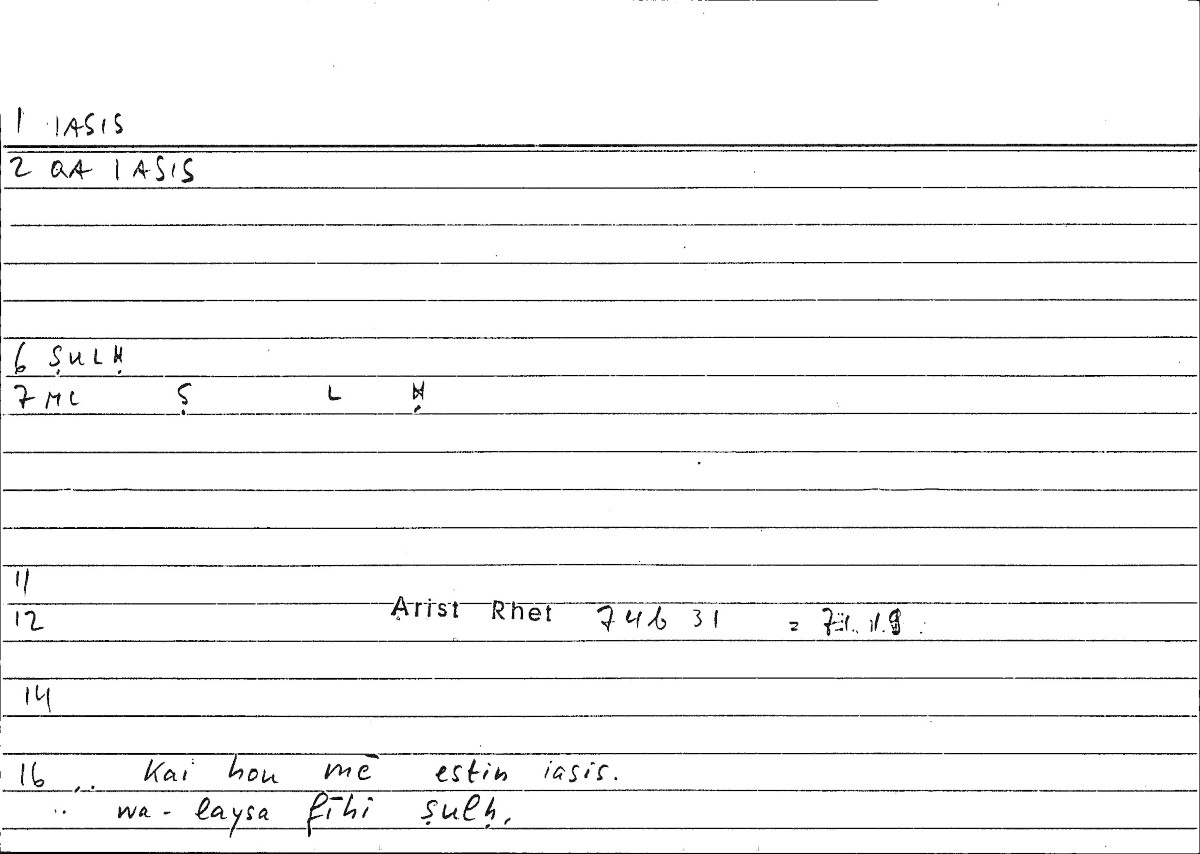 1 IASIS
2 QA IASIS
6 ṢULḤ
7 ML Ṣ L Ḥ
11
12 Arist Rhet 74b 31 =
14
16 .. Kai hou mē estin iasis.
.. wa-laysa fīhi ṣulḥ.